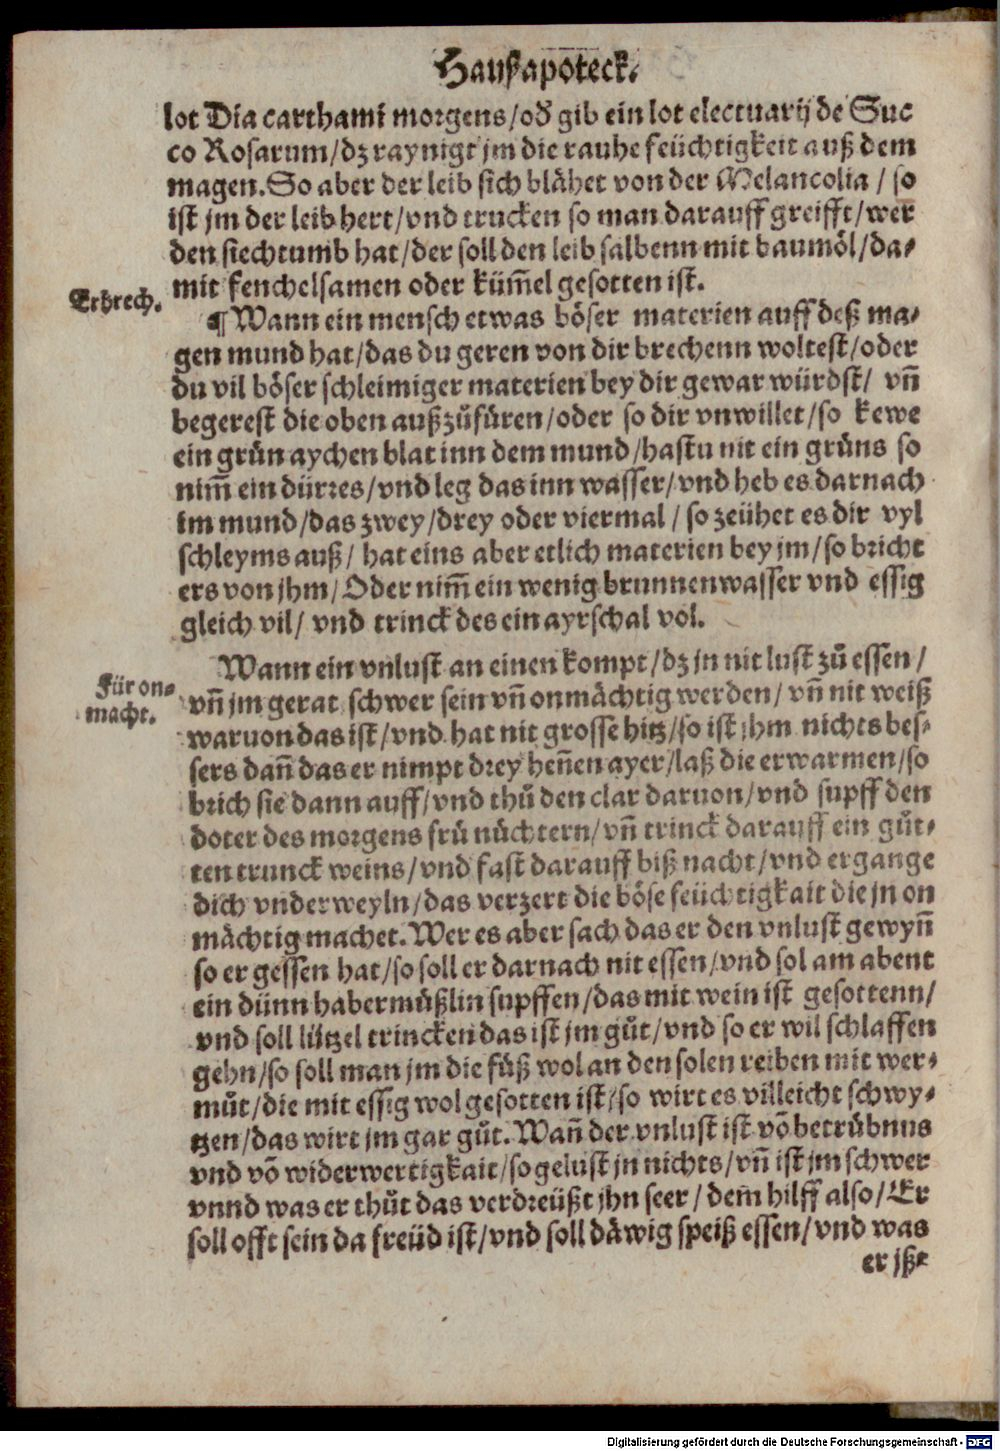 Haußapoteck.
lot Dia carthami morgens/od̕ gib ein lot electuarij de Suc
co Rosarum/dz raynigt jm die rauhe feüchtigkeit auß dem
magen. So aber der leib sich blähet von der Melancolia / so
ist jm der leib hert/vnd trucken so man darauff greifft/wer
den siechtumb hat/der soll den leib salbenn mit baumöl/da-
mit fenchelsamen oder küm̃el gesotten ist.
Erbrech.
¶ Wann ein mensch etwas böser materien auff deß ma-
gen mund hat/das du geren von dir brechenn woltest/oder
du vil böser schleimiger materien bey dir gewar würdst/ vñ
begerest die oben außzůfüren/oder so dir vnwillet/so kewe
ein grün aychen blat inn dem mund/hastu nit ein grüns so
nim̃ ein dürres/vnd leg das inn wasser/vnd heb es darnach
im mund/das zwey/drey oder viermal / so zeühet es dir vyl
schleyms auß/ hat eins aber etlich materien bey jm/so bricht
ers von jhm/ Oder nim̃ ein wenig brunnenwasser vnd essig
gleich vil/ vnd trinck des ein ayrschal vol.
Für on-
macht.
Wann ein vnlust an einen kompt/dz jn nit lust zů essen/
vñ jm gerat schwer sein vñ onmächtig werden/ vñ nit weiß
waruon das ist/vnd hat nit grosse hitz/so ist jhm nichts bes-
sers dañ das er nimpt drey heñen ayer/laß die erwarmen/so
brich sie dann auff/vnd thů den clar daruon/vnd supff den
doter des morgens frü nüchtern/vñ trinck darauff ein gůt-
ten trunck weins/vnd fast darauff biß nacht/vnd ergange
dich vnderweyln/das verzert die böse feüchtigkait die jn on
mächtig machet. Wer es aber sach das er den vnlust gewyñ
so er gessen hat/so soll er darnach nit essen/vnd sol am abent
ein dünn habermůßlin supffen/das mit wein ist gesottenn/
vnd soll lützel trincken das ist jm gůt/vnd so er wil schlaffen
gehn/so soll man jm die füß wol an den solen reiben mit wer-
můt/die mit essig wol gesotten ist/so wirt es villeicht schwy-
tzen/das wirt jm gar gůt. Wañ der vnlust ist võ betrübnus
vnd võ widerwertigkait/so gelust jn nichts/vñ ist jm schwer
vnnd was er thůt das verdreüßt jhn seer/ dem̃ hilff also/ Er
soll offt sein da freüd ist/vnd soll däwig speiß essen/vnd was
er jßt
Digitalisierung gefördert durch die Deutsche Forschungsgemeinschaft - DFG